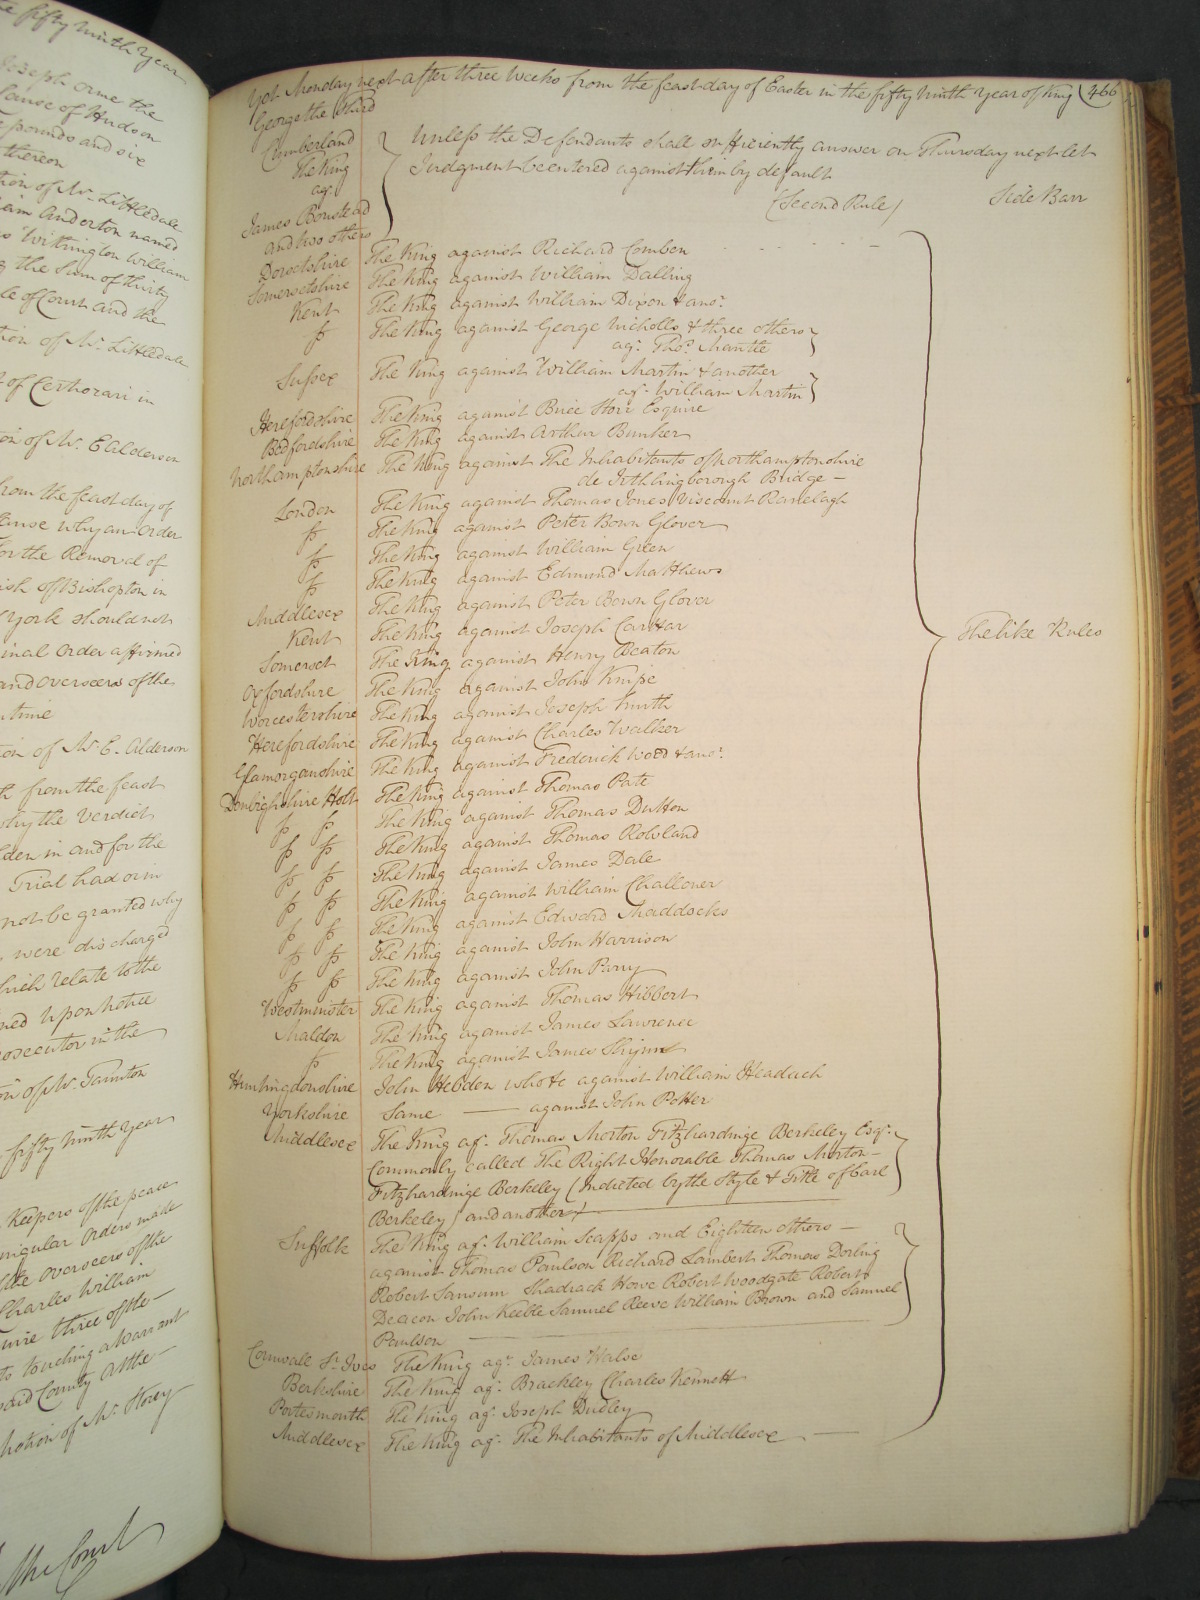 the fifty ninth Year
Joseph Orme the
Cause of Hudson
pounds and six
thereon
tion of Mr. Littledale
iam Anderton named
Withington William
the Sum of thirty
le of Court and the
tion of Mr. Littledale
of Certiorari in
on of Mr. E Alderson
from the feast day of
Cause why an Order
for the Removal of
ish of Bishopton in
York should not
inal Order affirmed
and overseers of the
time
ion of Mr. E. Alderson
from the feast
why the Verdict
den in and for the
Trial had or in
not be granted why
were discharged
which relate to the
ned upon notice
rosecutor in the
on of Mr. Taunton
fifty ninth Year
Keepers of the peace
singular Orders made
the Overseers of the
Charles William
uire three of the
to touching a Warrant
said County At the
Motion of Mr. Storey
the Court
Yet Monday next after three Weeks from the feast day of Easter in the fifty ninth Year of King 466
George the Third
Cumberland
The King
agt.
James Boustead
and two others
Unless the Defendants shall sufficiently answer on Thursday next let
Judgment be entered against them by default
(Second Rule) Side Barr
Dorsetshire The King against Richard Comben
Somersetshire The King against William Dalling
Kent The King against William Dixon & anor.
Do The King against George Nicholls & three others
agt. Thos. Mantle
Sussex The King against William Martin & another
agt. William Martin
Herefordshire The King against Brice Esquire
Bedfordshire The King against Arthur Bunker
Northamptonshire The King against The Inhabitants of Northamptonshire
de Irthlingborough Bridge
London The King against Thomas Jones Viscount Ranelagh
Do The King against Peter Bown Glover
Do The King against William Green
Do The King against Edmund Matthews
Middlesex The King against Peter Bown Glover
Kent The King against Joseph Carttar
Somerset The King against Henry Beaton
Oxfordshire The King against John Knipe
Worcestershire The King against Joseph Smith
Herefordshire The King against Charles Walker
Glamorganshire The King against Frederick Wood & anor.
Denbighshire Holt The King against Thomas Pate
Do Do The King against Thomas Dutton
Do Do The King against Thomas Rowland
Do Do The King against James Dale
Do Do The King against William Challoner
Do Do The King against Edward Maddocks
Do Do The King against John Harrison
Do Do The King against John Parry
Westminster The King against Thomas Hibbert
Maldon The King against James Lawrence
Do The King against James
Huntingdonshire John Hebden who &c against William Headach
Yorkshire Same against John Potter
Middlesex The King agt. Thomas Morton Fitzhardinge Berkeley Esqr.
Commonly called The Right Honorable Thomas Morton
Fitzhardinge Berkeley (Indicted by the Style & Title of Earl
Berkeley) and another
Suffolk The King agt. William Scapps and Eighteen others
against Thomas Paulson Richard Lambert Thomas Dorling
Robert Sansum Shadrack Howe Robert Woodgate Robert
Deacon John Keeble Samuel Reeve William Brown and Samuel
Paulson
Cornwall St. Ives The King agt. James Halse
Berkshire The King agt. Brackley Charles Kennett
Portesmouth The King agt. Joseph Dudley
Middlesex The King agt. The Inhabitants of Middlesex
The like Rules